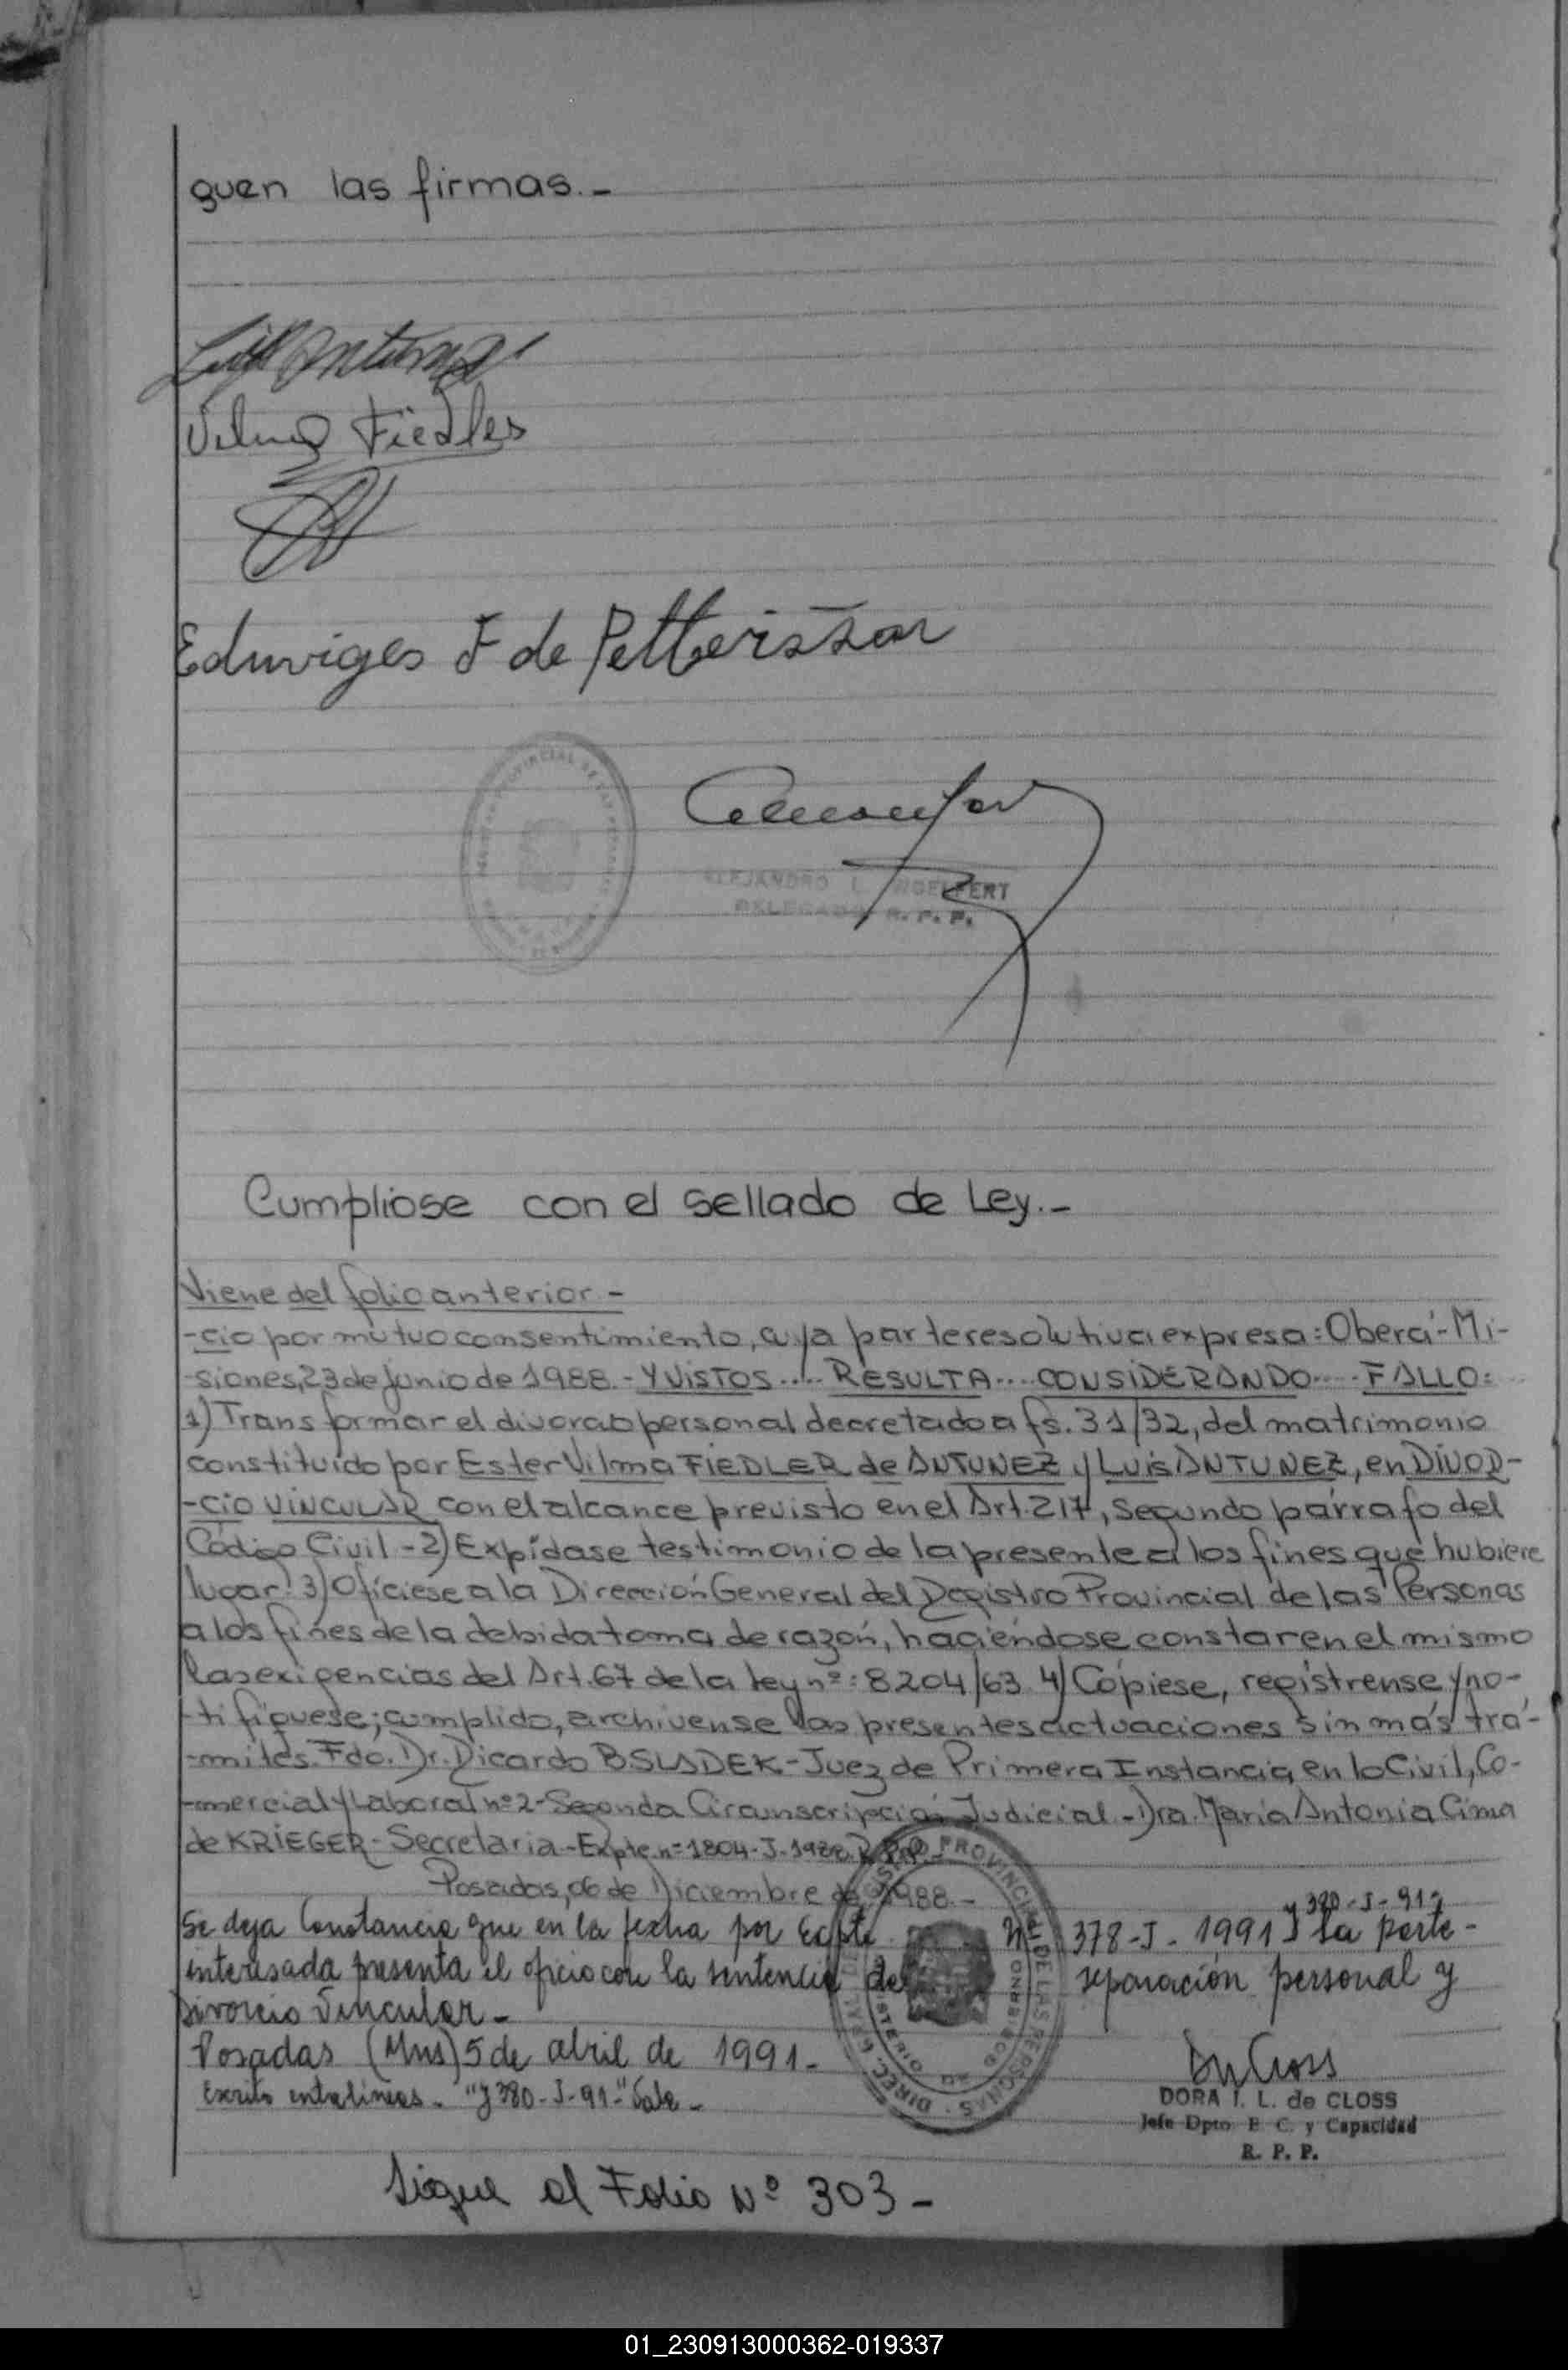 guen las firmas.-
Luis Antunez
Vilma Fiedler
Eduviges F de Pettersson
ALEJANDRO L. WOELFERT
DELEGADO R. P. P.
Cumpliose con el sellado de Ley.-
Viene del folio anterior.-
-cio por mutuo consentimiento, cuya parte resolutiva expresa: Oberá-Mi-
-siones, 23 de Junio de 1988.- Y VISTOS.... RESULTA.... CONSIDERANDO.... FALLO:
1) Transformar el divorcio personal decretado a fs. 31/32, del matrimonio
constituído por Ester Vilma FIEDLER de ANTUNEZ y LUIS ANTUNEZ, en DIVOR-
-CIO VINCULAR con el alcance previsto en el Art. 217, segundo párrafo del
Código Civil - 2) Expídase testimonio de la presente a los fines que hubiere
lugar. 3) Ofíciese a la Dirección General del Registro Provincial de las Personas
a los fines de la debida toma de razón, haciéndose constar en el mismo
las exigencias del Art. 67 de la Ley nº: 8204/63 4) Cópiese, regístrense y no-
-tifíquese; cumplido, archívense las presentes actuaciones sin más trá-
-mites. Fdo. Dr. Ricardo B. SLADEK - Juez de Primera Instancia en lo Civil, Co-
-mercial y Laboral nº 2 - Segunda Circunscripción Judicial - Dra. María Antonia Cima
de KRIEGER - Secretaria - Expte. nº 1804-J-1988 R.P.P.-
Posadas, 06 de Diciembre de 1988.-
y 380-J-91-
Se deja Constancia que en la fecha por Expte. Nº 378-J-1991 la parte-
interesada presenta el oficio con la sentencia de separación personal y
Divorcio Vincular.-
Posadas (Mns) 5 de abril de 1991.-
Escrito entrelíneas. "y 380-J-91-" Vale-
DORA I. L. de CLOSS
Jefe Dpto. E. C. y Capacidad
R. P. P.
Sigue al Folio Nº 303-
01_230913000362-019337